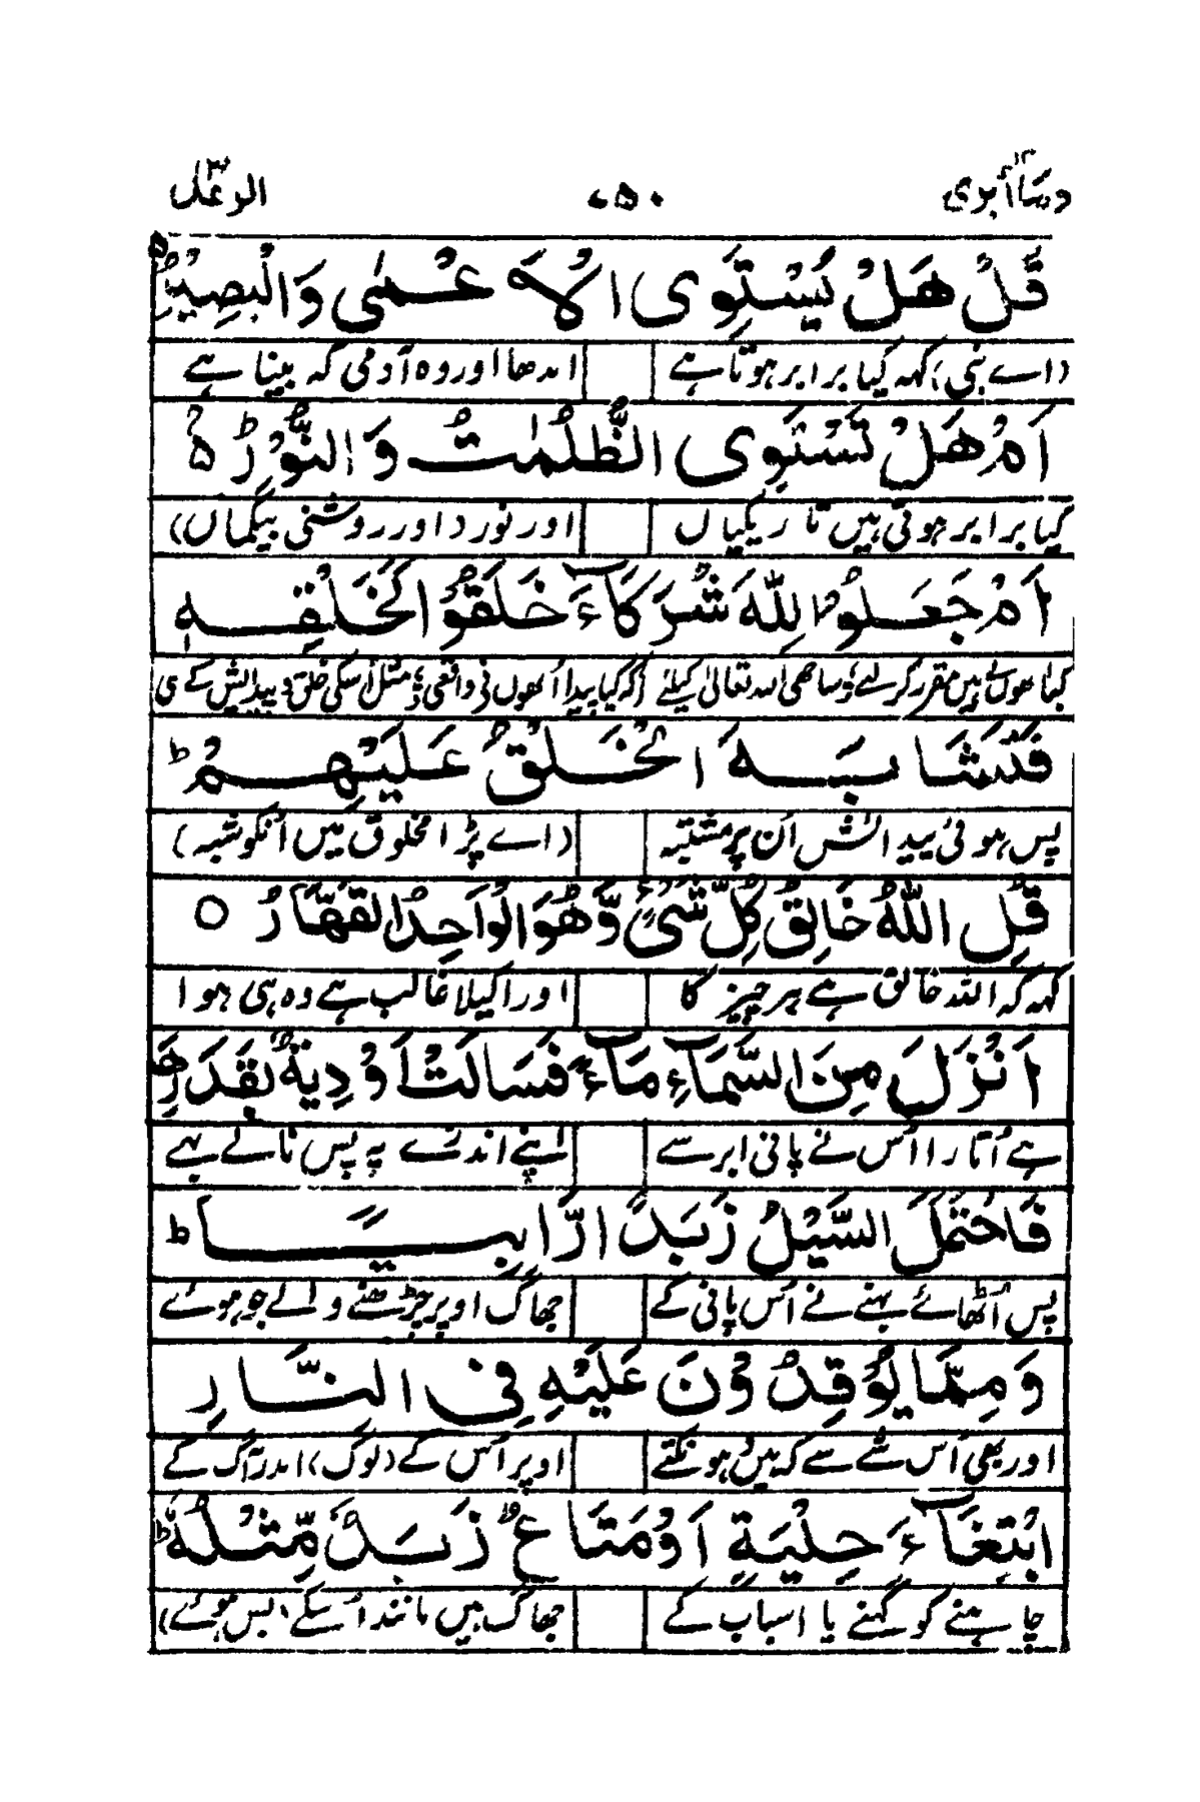 وما أبرئ ١٣ ٧٥٠ الرعد ١٣
قُلْ هَلْ يَسْتَوِى الْاَعْمٰى وَالْبَصِيْرُ ۵
(اے نبی) کہہ کیا برابر ہوتا ہے اندھا اور وہ آدمی کہ بینا ہے
اَمْ هَلْ تَسْتَوِى الظُّلُمٰتُ وَالنُّوْرُ ۵
کیا برابر ہوتی ہیں تاریکیاں اور نور (اور روشنی یکساں)
اَمْ جَعَلُوْا لِلّٰهِ شُرَكَآءَ خَلَقُوْا كَخَلْقِهٖ
کیا انھوں نے ہیں مقرر کر لئے ساجھی اللہ تعالیٰ کیلئے (کہ کیا پیدا انھوں نے واقعی مثل اسکی خلق پیدائش کے ی
فَتَشَابَهَ الْخَلْقُ عَلَيْهِمْ ط
پس ہوئی پیدائش اُن پر مشتبہ (اے پڑا مخلوق میں اُنکو شبہ)
قُلِ اللّٰهُ خَالِقُ كُلِّ شَىْءٍ وَّهُوَ الْوَاحِدُ الْقَهَّارُ ○
کہہ کہ اللہ خالق ہے ہر چیز کا اور اکیلا غالب ہے وہ ہی ہوا
اَنْزَلَ مِنَ السَّمَآءِ مَآءً فَسَالَتْ اَوْدِيَةٌ بِقَدَرِهَا
ہے اُتارا اُس نے پانی ابر سے اپنے اندازے پہ پس نالے بہے
فَاحْتَمَلَ السَّيْلُ زَبَدًا رَّابِيًا ط
پس اُٹھائے بہنے نے اُس پانی کے جھاگ اوپر چڑھنے والے جو ہوئے
وَمِمَّا يُوْقِدُوْنَ عَلَيْهِ فِى النَّارِ
اور بھی اُس شے سے کہ ہیں ہونکتے اوپر اُس کے (لوگ) اندر آگ کے
ابْتِغَآءَ حِلْيَةٍ اَوْ مَتَاعٍ زَبَدٌ مِّثْلُهٗ ط
چاہنے کو گہنے یا اسباب کے جھاگ ہیں مانند اُسکے (بس ہوئے)